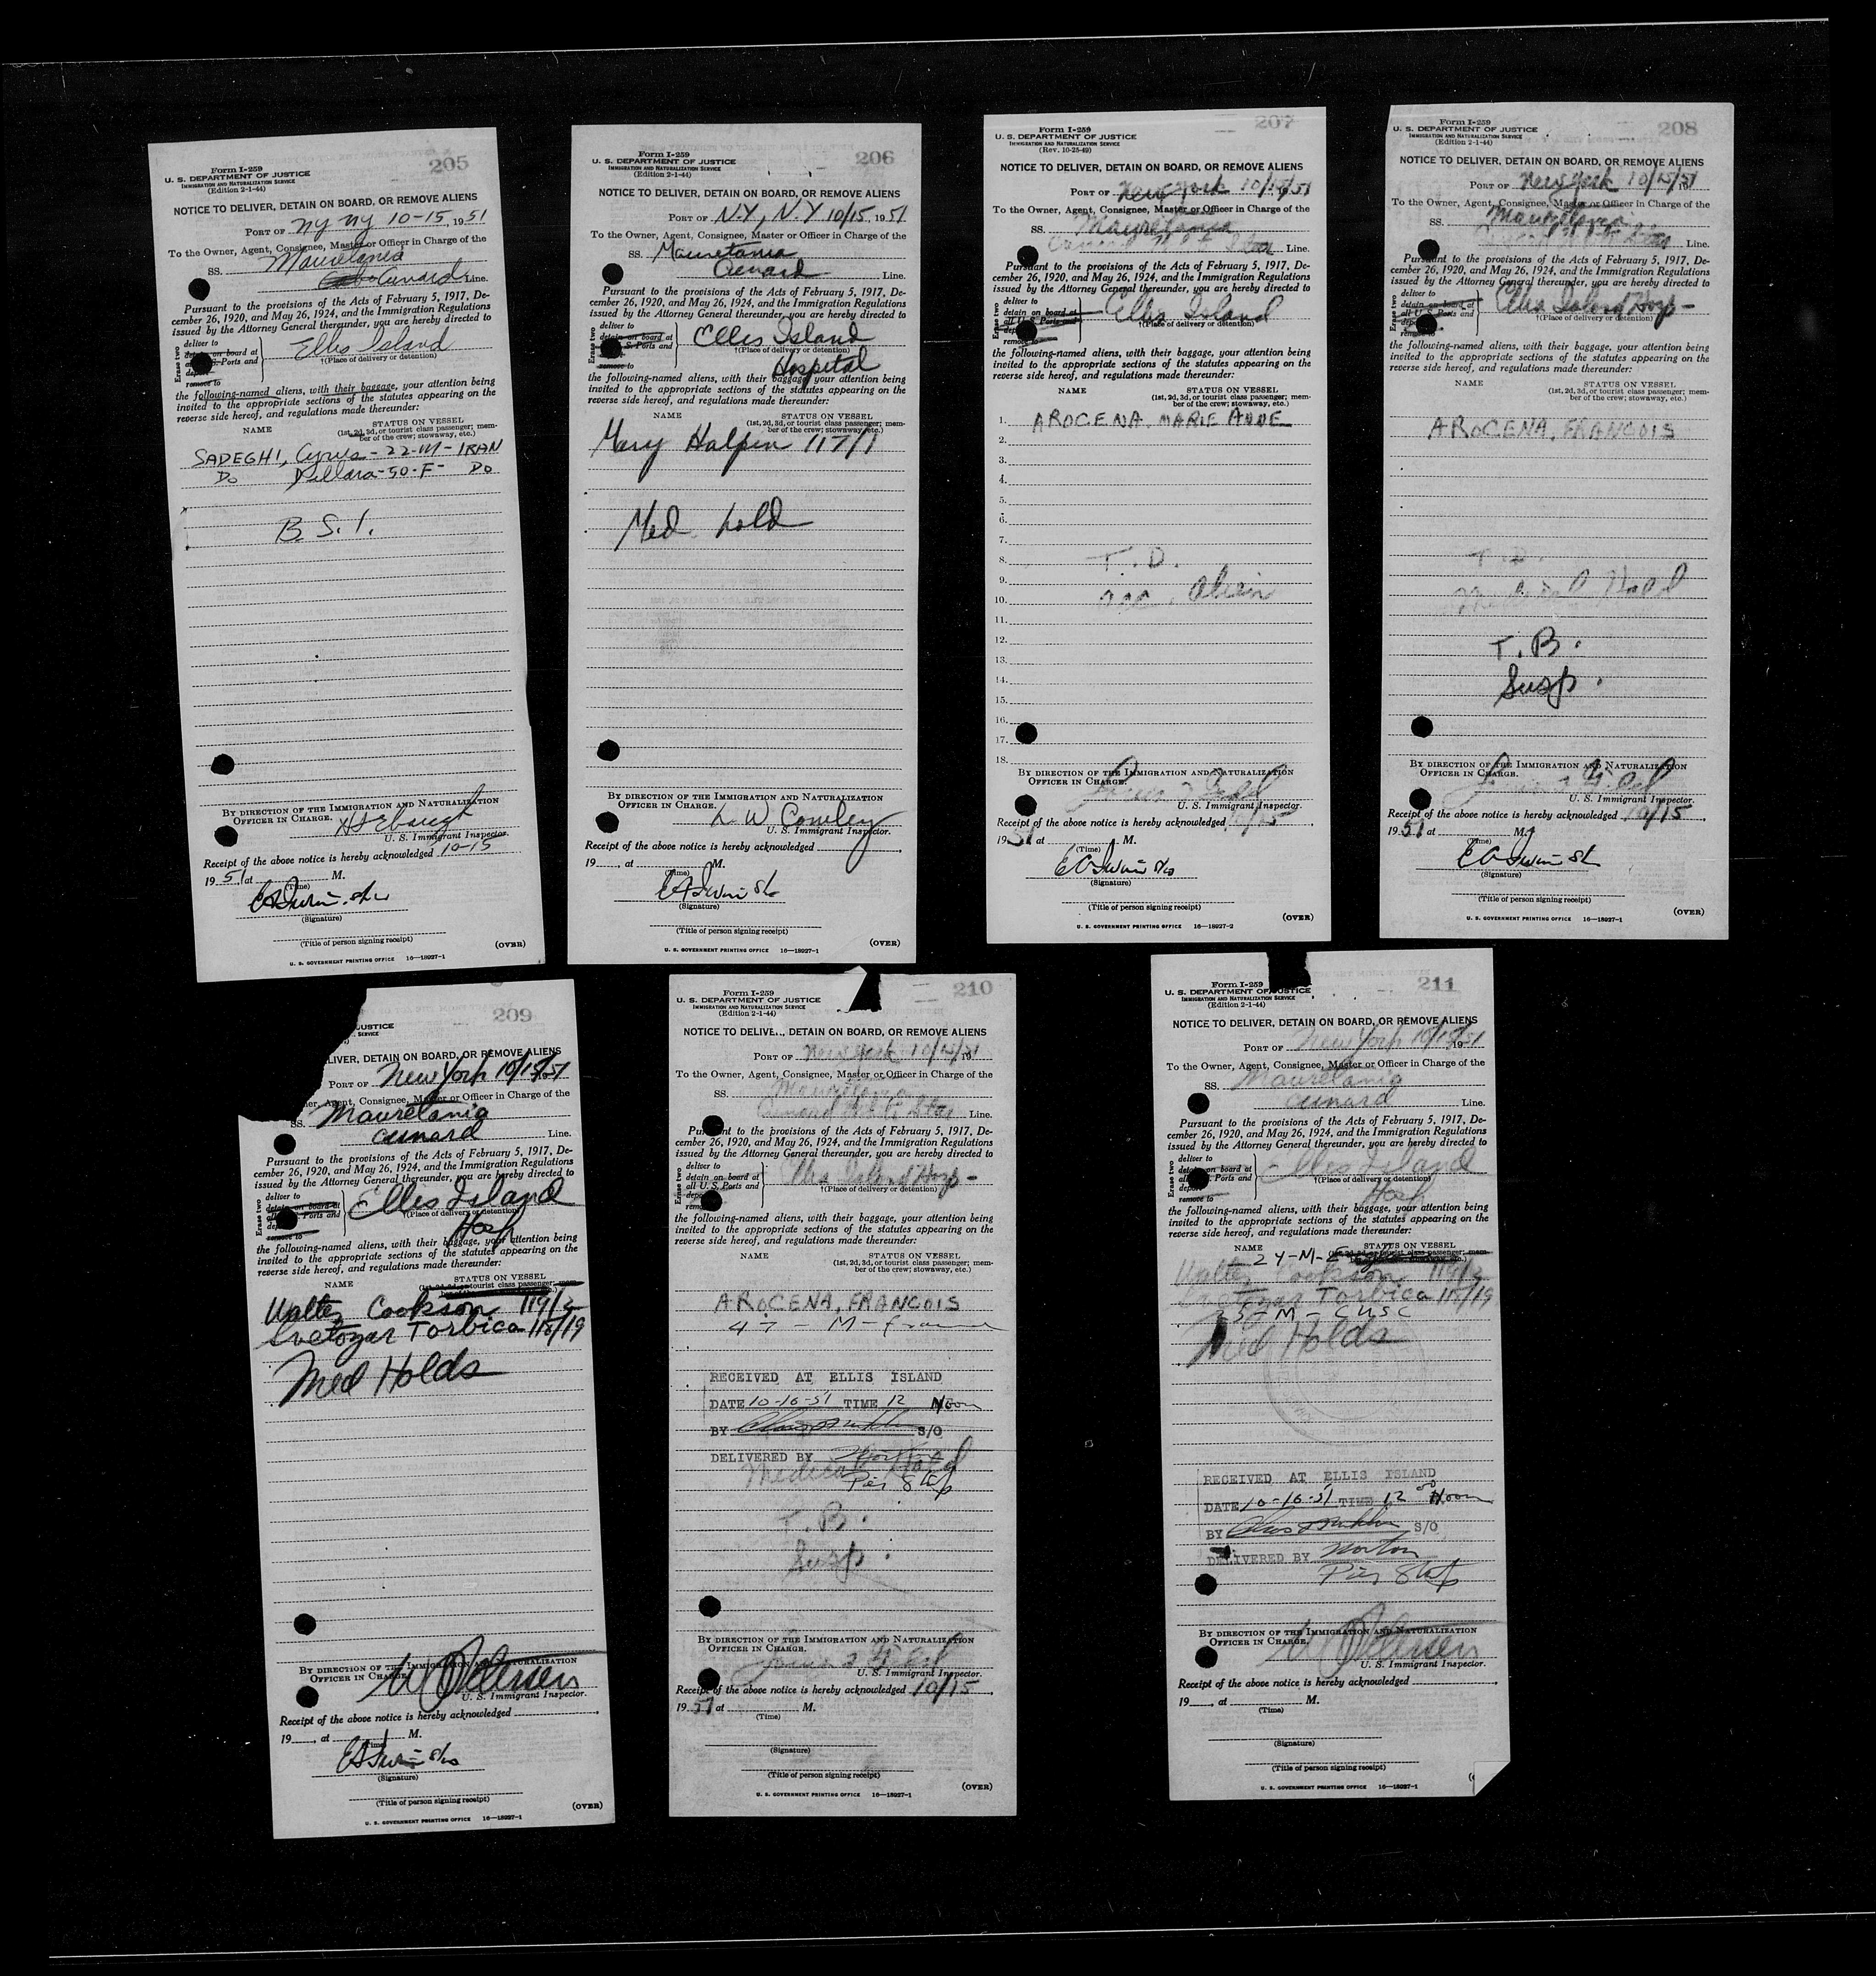 205
Form I-259
U. S. DEPARTMENT OF JUSTICE
IMMIGRATION AND NATURALIZATION SERVICE
(Edition 2-1-44)
NOTICE TO DELIVER, DETAIN ON BOARD, OR REMOVE ALIENS
PORT OF NY NY 10-15, 1951
To the Owner, Agent, Consignee, Master or Officer in Charge of the
SS. Mauretania
Cunard Line.
Pursuant to the provisions of the Acts of February 5, 1917, De-
cember 26, 1920, and May 26, 1924, and the Immigration Regulations
issued by the Attorney General thereunder, you are hereby directed to
Erase two
deliver to
detain on board at
S. Ports and
remove to
Ellis Island
†(Place of delivery or detention)
the following-named aliens, with their baggage, your attention being
invited to the appropriate sections of the statutes appearing on the
reverse side hereof, and regulations made thereunder:
NAME STATUS ON VESSEL
(1st, 2d, 3d, or tourist class passenger; mem-
ber of the crew; stowaway, etc.)
SADEGHI, Cyrus - 22-M - IRAN
Do Dillara - 50 - F - Do
B. S. I.
BY DIRECTION OF THE IMMIGRATION AND NATURALIZATION
OFFICER IN CHARGE.
U. S. Immigrant Inspector.
Receipt of the above notice is hereby acknowledged 10-15
1951 at M.
(Time)
(Signature)
(Title of person signing receipt)
(OVER)
U. S. GOVERNMENT PRINTING OFFICE 16—18927-1
206
Form I-259
U. S. DEPARTMENT OF JUSTICE
IMMIGRATION AND NATURALIZATION SERVICE
(Edition 2-1-44)
NOTICE TO DELIVER, DETAIN ON BOARD, OR REMOVE ALIENS
PORT OF N.Y, N.Y 10/15, 1951
To the Owner, Agent, Consignee, Master or Officer in Charge of the
SS. Mauretania
Cunard Line.
Pursuant to the provisions of the Acts of February 5, 1917, De-
cember 26, 1920, and May 26, 1924, and the Immigration Regulations
issued by the Attorney General thereunder, you are hereby directed to
Erase two
deliver to
detain on board at
S. Ports and
remove to
Ellis Island
†(Place of delivery or detention)
Hospital
the following-named aliens, with their baggage, your attention being
invited to the appropriate sections of the statutes appearing on the
reverse side hereof, and regulations made thereunder:
NAME STATUS ON VESSEL
(1st, 2d, 3d, or tourist class passenger; mem-
ber of the crew; stowaway, etc.)
Mary Halpin 117/1
Med. hold
BY DIRECTION OF THE IMMIGRATION AND NATURALIZATION
OFFICER IN CHARGE.
L W Conley
U. S. Immigrant Inspector.
Receipt of the above notice is hereby acknowledged
19 , at M.
(Time)
(Signature)
(Title of person signing receipt)
(OVER)
U. S. GOVERNMENT PRINTING OFFICE 16—18927-1
207
Form I-259
U. S. DEPARTMENT OF JUSTICE
IMMIGRATION AND NATURALIZATION SERVICE
(Rev. 10-25-49)
NOTICE TO DELIVER, DETAIN ON BOARD, OR REMOVE ALIENS
PORT OF New York 10/15/51
To the Owner, Agent, Consignee, Master or Officer in Charge of the
SS. Mauretania
Line.
Pursuant to the provisions of the Acts of February 5, 1917, De-
cember 26, 1920, and May 26, 1924, and the Immigration Regulations
issued by the Attorney General thereunder, you are hereby directed to
Erase two
deliver to
detain on board at
all U. S. Ports and
remove to
Ellis Island
†(Place of delivery or detention)
the following-named aliens, with their baggage, your attention being
invited to the appropriate sections of the statutes appearing on the
reverse side hereof, and regulations made thereunder:
NAME STATUS ON VESSEL
(1st, 2d, 3d, or tourist class passenger; mem-
ber of the crew; stowaway, etc.)
1. AROCENA, MARIE
2.
3.
4.
5.
6.
7.
8. T. D.
9.
10. acc. alien
11.
12.
13.
14.
15.
16.
17.
18.
BY DIRECTION OF THE IMMIGRATION AND NATURALIZATION
OFFICER IN CHARGE.
U. S. Immigrant Inspector.
Receipt of the above notice is hereby acknowledged 10/15
1951 at M.
(Time)
(Signature)
(Title of person signing receipt)
(OVER)
U. S. GOVERNMENT PRINTING OFFICE 16—18927-2
208
Form I-259
U. S. DEPARTMENT OF JUSTICE
IMMIGRATION AND NATURALIZATION SERVICE
(Edition 2-1-44)
NOTICE TO DELIVER, DETAIN ON BOARD, OR REMOVE ALIENS
PORT OF New York 10/15/51
To the Owner, Agent, Consignee, Master or Officer in Charge of the
SS. Mauretania
Line.
Pursuant to the provisions of the Acts of February 5, 1917, De-
cember 26, 1920, and May 26, 1924, and the Immigration Regulations
issued by the Attorney General thereunder, you are hereby directed to
Erase two
deliver to
detain on board at
all U. S. Ports and
Ellis Island Hosp -
†(Place of delivery or detention)
the following-named aliens, with their baggage, your attention being
invited to the appropriate sections of the statutes appearing on the
reverse side hereof, and regulations made thereunder:
NAME STATUS ON VESSEL
(1st, 2d, 3d, or tourist class passenger; mem-
ber of the crew; stowaway, etc.)
AROCENA, FRANCOIS
T. D.
Medical Hold
T. B.
Susp.
BY DIRECTION OF THE IMMIGRATION AND NATURALIZATION
OFFICER IN CHARGE.
U. S. Immigrant Inspector.
Receipt of the above notice is hereby acknowledged 10/15
1951 at M.
(Time)
(Signature)
(Title of person signing receipt)
(OVER)
U. S. GOVERNMENT PRINTING OFFICE 16—18927-1
209
JUSTICE
SERVICE
LIVER, DETAIN ON BOARD, OR REMOVE ALIENS
PORT OF New York 10/15/51
ner, Agent, Consignee, Master or Officer in Charge of the
SS. Mauretania
Cunard Line.
Pursuant to the provisions of the Acts of February 5, 1917, De-
cember 26, 1920, and May 26, 1924, and the Immigration Regulations
issued by the Attorney General thereunder, you are hereby directed to
Erase two
deliver to
detain on board at
Ports and
Ellis Island
†(Place of delivery or detention)
Hosp
the following-named aliens, with their baggage, your attention being
invited to the appropriate sections of the statutes appearing on the
reverse side hereof, and regulations made thereunder:
NAME STATUS ON VESSEL
Walter Cookson 119/3
Cvetozar Torbica 115/19
Med Holds
BY DIRECTION OF THE IMMIGRATION AND NATURALIZATION
OFFICER IN CHARGE.
U. S. Immigrant Inspector.
Receipt of the above notice is hereby acknowledged
19 , at M.
(Time)
(Signature)
(Title of person signing receipt)
(OVER)
U. S. GOVERNMENT PRINTING OFFICE 16—18927-1
210
Form I-259
U. S. DEPARTMENT OF JUSTICE
IMMIGRATION AND NATURALIZATION SERVICE
(Edition 2-1-44)
NOTICE TO DELIVE , DETAIN ON BOARD, OR REMOVE ALIENS
PORT OF New York 10/15/51
To the Owner, Agent, Consignee, Master or Officer in Charge of the
SS. Mauretania
Line.
Pursuant to the provisions of the Acts of February 5, 1917, De-
cember 26, 1920, and May 26, 1924, and the Immigration Regulations
issued by the Attorney General thereunder, you are hereby directed to
Erase two
deliver to
detain on board at
all U. S. Ports and
Ellis Island Hosp -
†(Place of delivery or detention)
the following-named aliens, with their baggage, your attention being
invited to the appropriate sections of the statutes appearing on the
reverse side hereof, and regulations made thereunder:
NAME STATUS ON VESSEL
(1st, 2d, 3d, or tourist class passenger; mem-
ber of the crew; stowaway, etc.)
AROCENA, FRANCOIS
47 - M -
RECEIVED AT ELLIS ISLAND
DATE 10-16-51 TIME 12 Noon
BY S/O
DELIVERED BY Norton
Medical Hold
Pier 8
T. B.
Susp.
BY DIRECTION OF THE IMMIGRATION AND NATURALIZATION
OFFICER IN CHARGE.
U. S. Immigrant Inspector.
Receipt of the above notice is hereby acknowledged 10/15
1951 at M.
(Time)
(Signature)
(Title of person signing receipt)
(OVER)
U. S. GOVERNMENT PRINTING OFFICE 16—18927-1
211
Form I-259
U. S. DEPARTMENT OF JUSTICE
IMMIGRATION AND NATURALIZATION SERVICE
(Edition 2-1-44)
NOTICE TO DELIVER, DETAIN ON BOARD, OR REMOVE ALIENS
PORT OF New York 10/15/51
To the Owner, Agent, Consignee, Master or Officer in Charge of the
SS. Mauretania
Cunard Line.
Pursuant to the provisions of the Acts of February 5, 1917, De-
cember 26, 1920, and May 26, 1924, and the Immigration Regulations
issued by the Attorney General thereunder, you are hereby directed to
Erase two
deliver to
detain on board at
S. Ports and
remove to
Ellis Island
†(Place of delivery or detention)
Hosp
the following-named aliens, with their baggage, your attention being
invited to the appropriate sections of the statutes appearing on the
reverse side hereof, and regulations made thereunder:
NAME STATUS ON VESSEL
24-M-
Walter Cookson 119/3
Cvetozar Torbica 115/19
23-M-
Med Holds
RECEIVED AT ELLIS ISLAND
DATE 10-16-51 TIME 12 00 Noon
BY S/O
DELIVERED BY Norton
Pier 8
BY DIRECTION OF THE IMMIGRATION AND NATURALIZATION
OFFICER IN CHARGE.
U. S. Immigrant Inspector.
Receipt of the above notice is hereby acknowledged
19 , at M.
(Time)
(Signature)
(Title of person signing receipt)
U. S. GOVERNMENT PRINTING OFFICE 16—18927-1